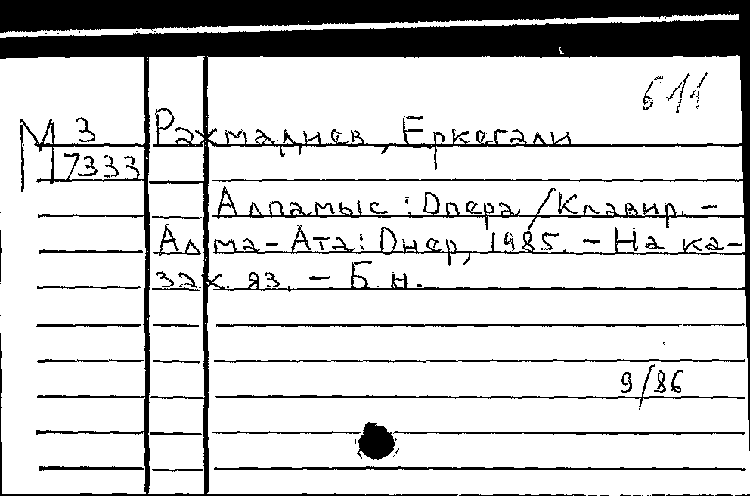 611
М 3 Рахмадиев, Еркегали
7333
Алпамыс : Опера / Клавир. -
Алма-Ата: Онер, 1985. - На ка-
зах. яз. - Б. н.
9/86